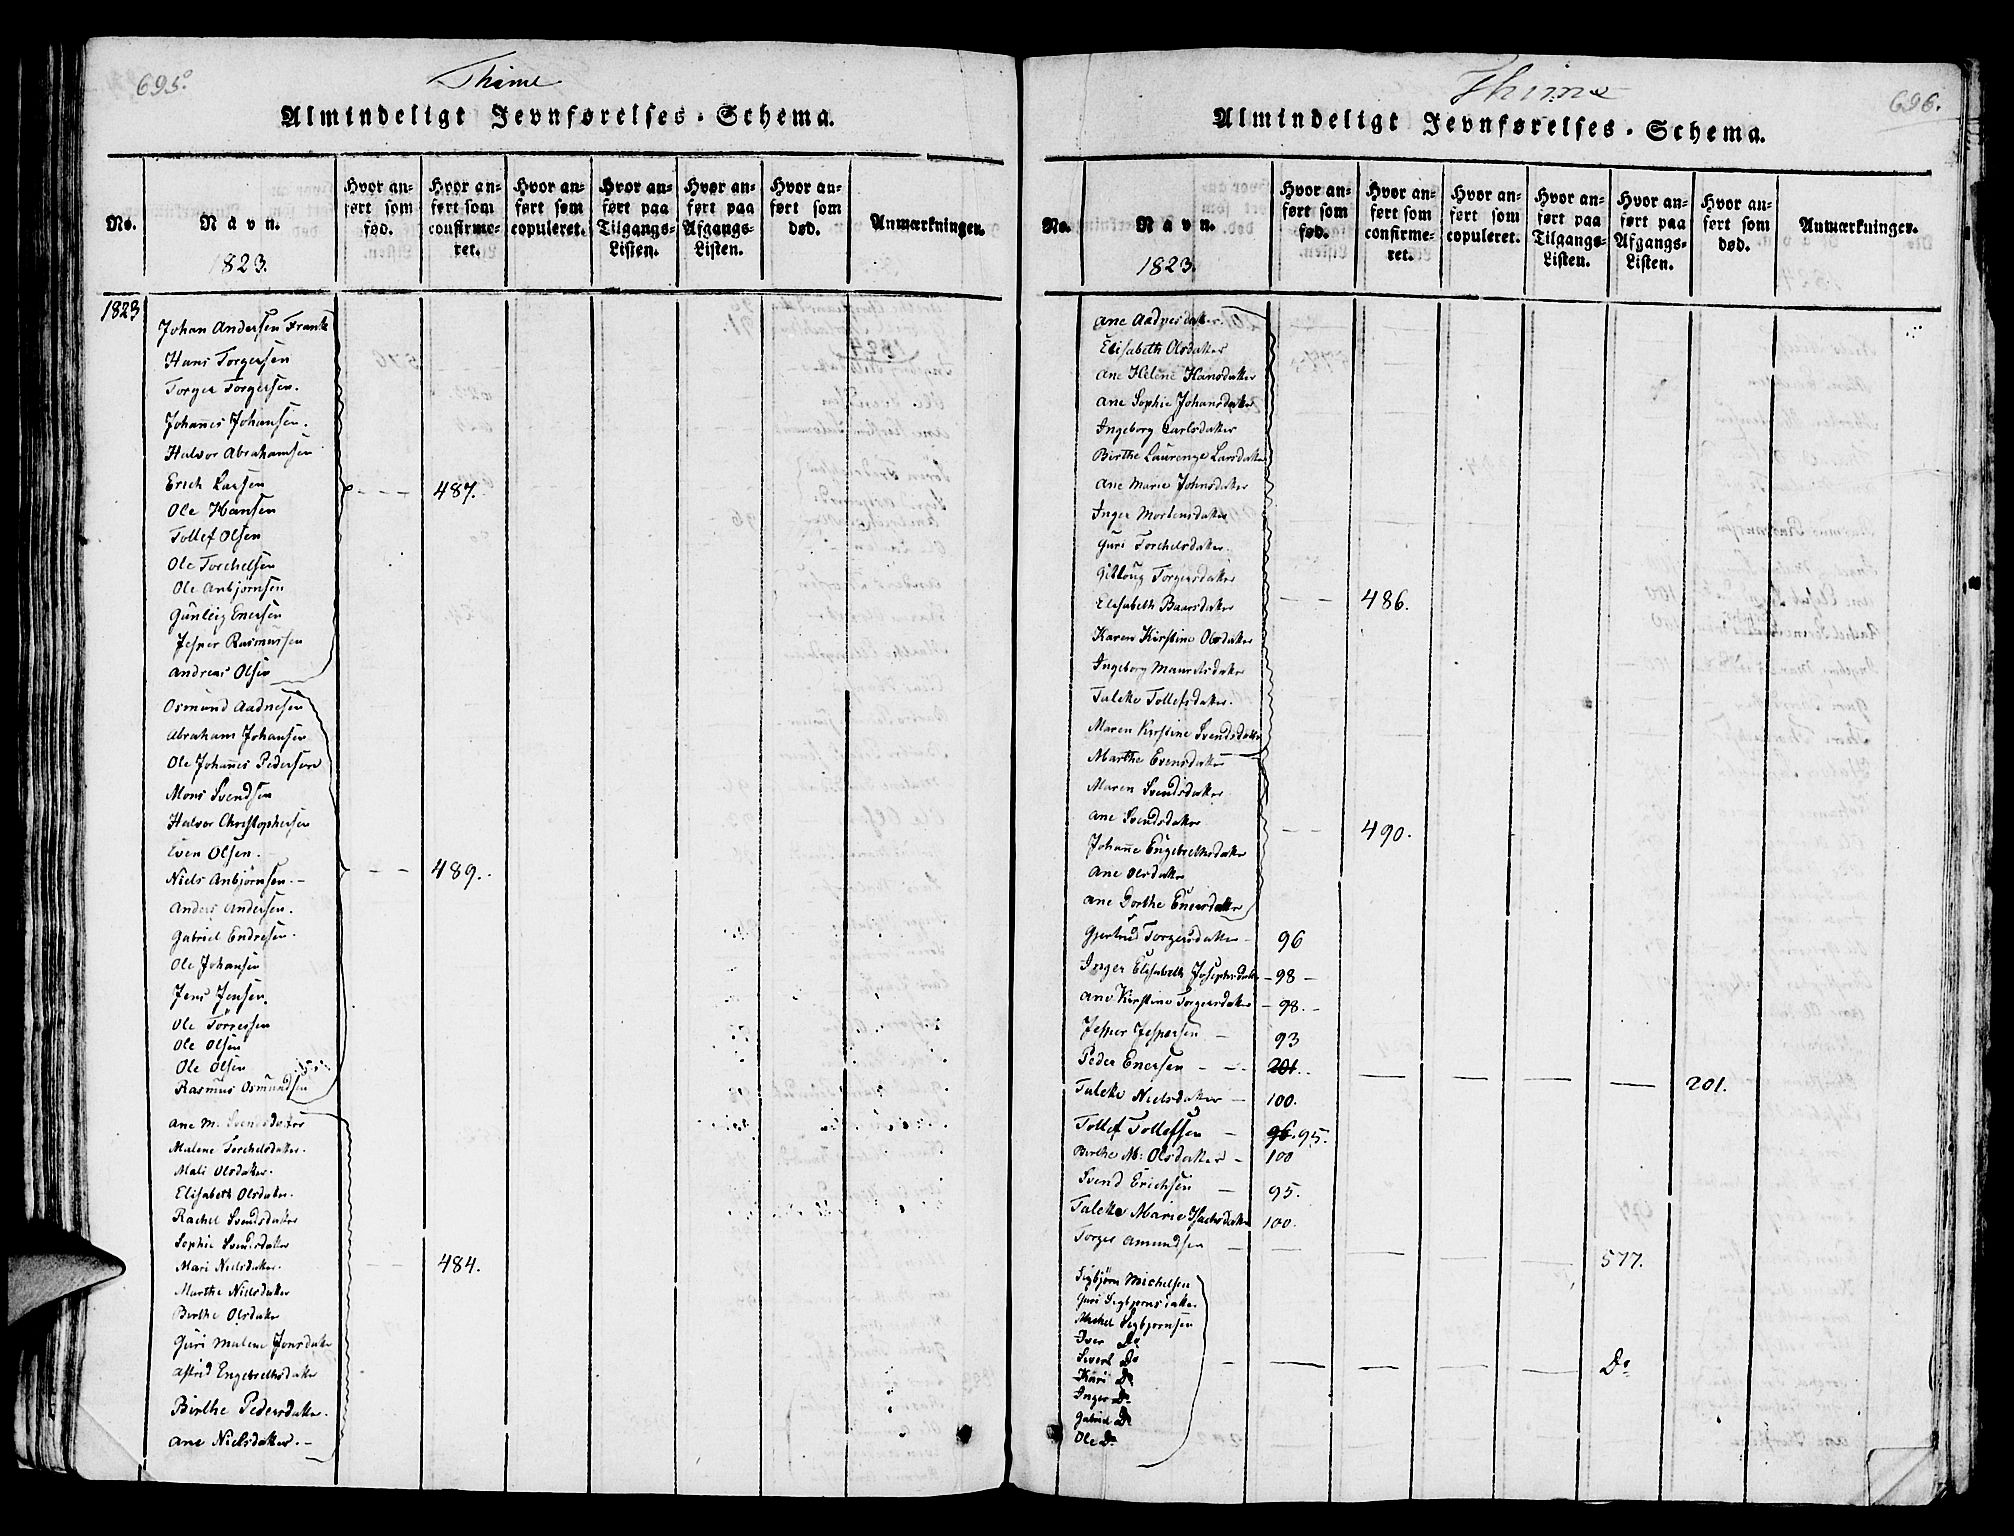 695.
Thime
Almindeligt Jevnførelses-Schema.
No.
Navn.
1823.
Hvor anført som fød.
Hvor anført som confirmeret.
Hvor anført som copuleret.
Hvor anført paa Tilgangs-Listen.
Hvor anført paa Afgangs-Listen.
Hvor anført som død.
Anmærkninger.
1823
Johan Andersen Frank
Hans Torgersen
Torger Torgersen.
Johannes Johansen.
Halvor Abrahamsen
Erich Larsen - - - 487.
Ole Hansen
Tollef Olsen
Ole Torchelsen
Ole Anbjørnsen
Gunleig Enersen
Jesper Rasmussen
Andreas Olsen
Osmund Aadnesen
Abraham Johansen
Ole Johannes Pedersen
Mons Svendsen
Halvor Christophersen
Even Olsen.
Niels Anbjørnsen. - - - 489.
Anders Andersen.
Gabriel Endresen.
Ole Johansen
Jens Jensen.
Ole Torresen
Ole Olsen
Ole Olsen
Rasmus Osmundsen
Ane M. Svendsdatter
Malene Torchelsdatter.
Mali Olsdatter.
Elisabeth Olsdatter.
Rachel Svendsdatter
Sophie Svendsdatter
Mari Nielsdatter. - - 484.
Marthe Nielsdatter
Birthe Olsdatter
Guri Malene Jonsdatter
Astrid Engebrethsdatter
Birthe Pedersdatter.
Ane Nielsdatter. -
696.
Thime
Almindeligt Jevnførelses-Schema.
No.
Navn.
1823.
Hvor anført som fød.
Hvor anført som confirmeret.
Hvor anført som copuleret.
Hvor anført paa Tilgangs-Listen.
Hvor anført paa Afgangs-Listen.
Hvor anført som død.
Anmærkninger.
Ane Aadnesdatter.
Elisabeth Olsdatter
Ane Helene Hansdatter
Ane Sophie Johansdatter
Ingeborg Carlsdatter
Birthe Laurenze Larsdatter
Ane Marie Johnsdatter
Inger Mortensdatter
Guri Torchelsdatter.
Torgersdatter
Elisabeth Baarsdatter - - 486.
Karen Kirstine Olsdatter
Ingeborg Mauretsdatter
Taleke Tollefsdatter.
Maren Kirstine Svendsdatter
Marthe Evensdatter
Maren Svendsdatter
Ane Svendsdatter - - 490.
Johanne Engebrethsdatter
Ane Olsdatter
Ane Dorthe Enersdatter
Gjertrud Torgersdatter - 96
Inger Elisabeth Josephsdatter - 98 -
Ane Kirstine Torgersdatter - 98. -
Jesper Jespersen - 93
Peder Enersen - - - 201. - - - - 201.
Taleke Nielsdatter - 100.
Tollef Tollefsen - 96. 95.
Birthe M: Olsdatter - 100
Svend Erichsen - 95.
Taleke Marie Isachsdatter 100.
Torger Amundsen - - - - - 577.
Sigbjørn Michelsen
Guri Sigbjørnsdatter
Michel Sigbjørnsen
Iver Do
Sivert Do - - - - - Do
Kari Do
Inger Do
Gabriel Do
Ole Do